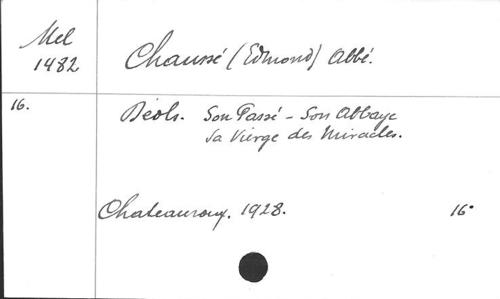 Mel
1482
Chaussé (Edmond) Abbé.
16.
Déols. Son Passé - Son Abbaye
Sa Vierge des Miracles.
Chateauroux. 1928.
16°